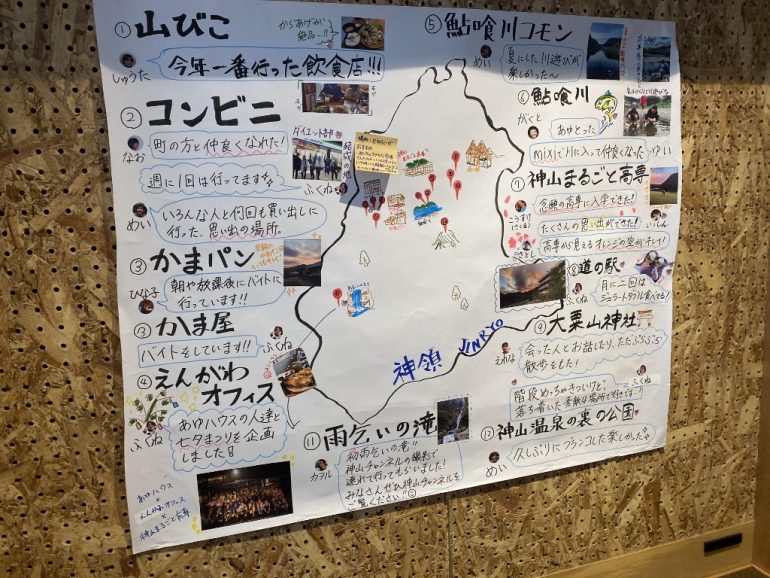 ① 山びこ
からあげが
絶品…!!
今年一番行った飲食店!!!
しゅうた
② コンビニ
町の方と仲良くなれた!
なお
ダイエット部
週に1回は行ってます
ふくね
めい
いろんな人と何回も買い出しに
行った、思い出の場所。
③ かまパン
朝や放課後にバイトに
行っています!!
ひな子
③ かま屋
バイトをしています!!
ふくね
④ えんがわ
オフィス
ふくね
あゆハウスの人達と
七夕まつりを企画
しました!
あゆハウス
×
えんがわオフィス
×
神山まるごと高専
⑤ 鮎喰川コモン
めい
夏にした川遊びが
楽しかった〜
⑥ 鮎喰川
がくと
あゆとった
MIXIで川に入って仲良くなった
ゆい
⑦ 神山まるごと高専
こうすけ
念願の高専に入学できた!
たくさんの思い出ができた!
いっしん
高専から見えるオレンジの空がキレイ!
⑧ 道の駅
ふくね
月に二回は
ジェラートダブル食べてる!
⑨ 大粟山神社
えれな
会った人とお話したり、ただぶらぶら
散歩をした!
ふくね
階段めっちゃきついけど、
落ち着いた素敵な場所で好きです!
神領 JINRYO
⑪ 雨乞いの滝
カヲル
初雨乞いの滝!!
神山チャンネルの撮影で
連れて行ってもらいました!
みなさんぜひ神山チャンネルを
ご覧ください!!
⑫ 神山温泉の裏の公園
めい
久しぶりにブランコした楽しかった